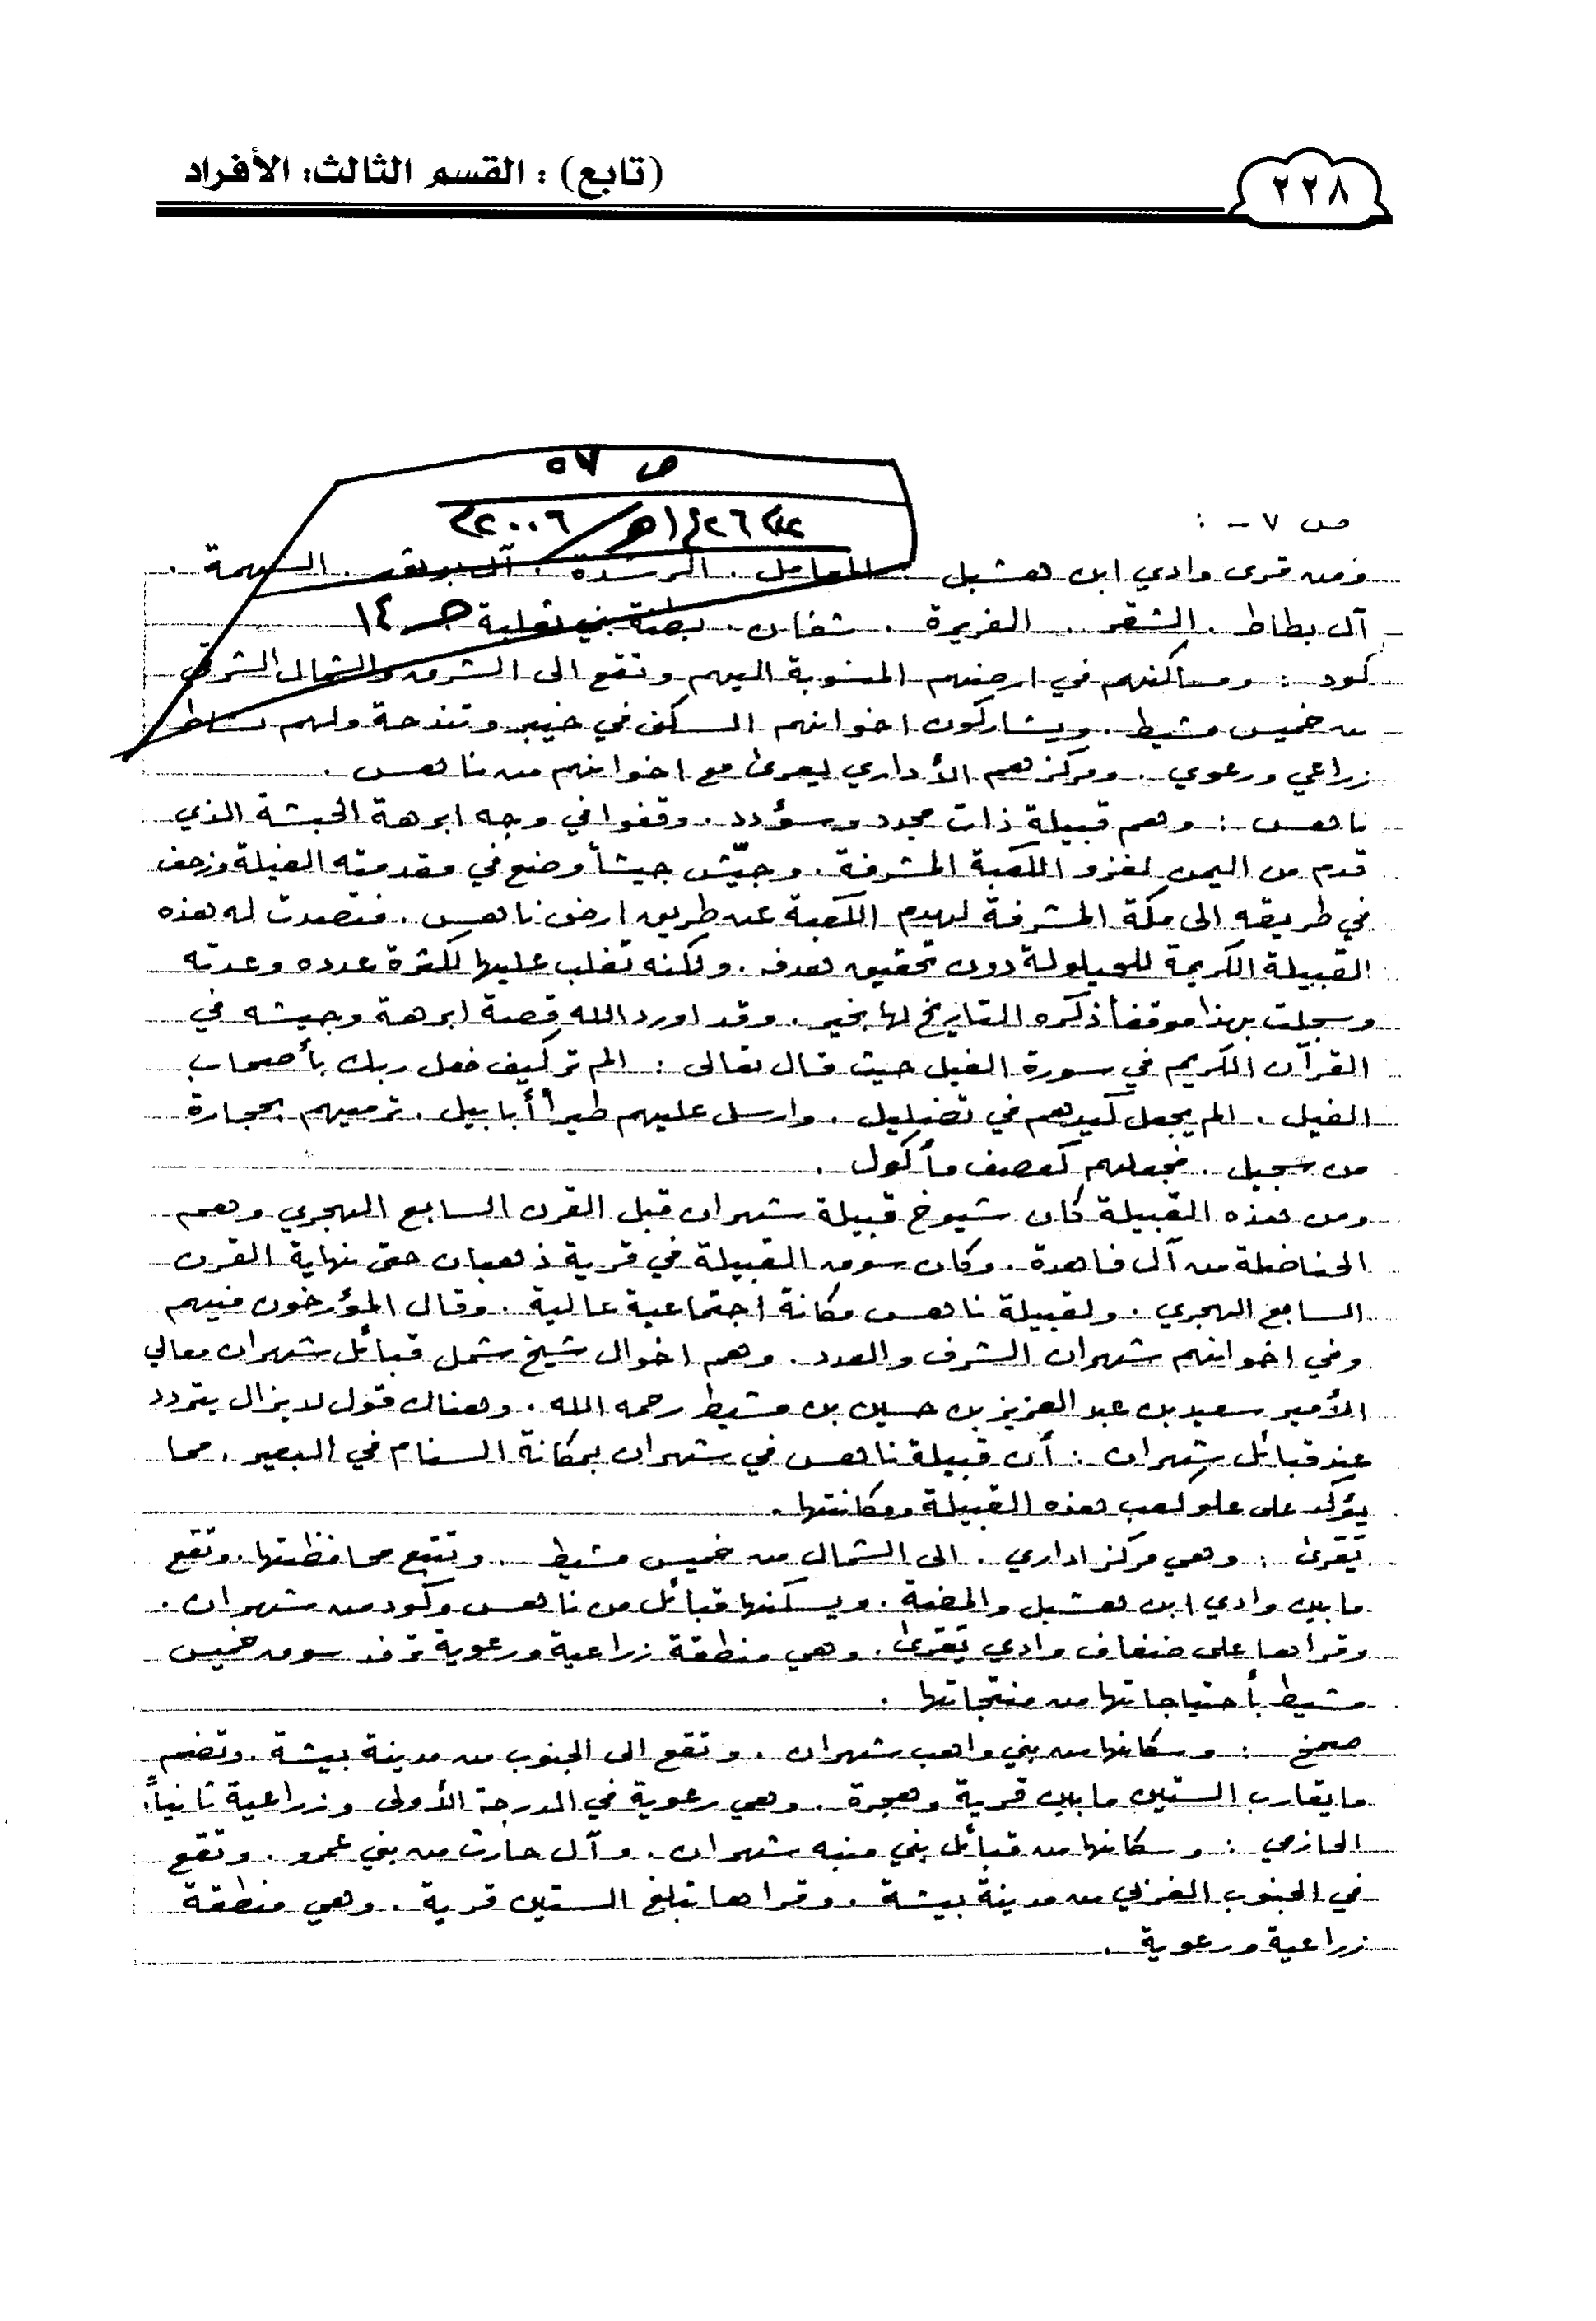 ٢٢٨
(تابع) : القسم الثالث: الأفراد
ص ٥٧
١٤٢٦هـ/٢٠٠٦م
ص ٧ - :
ومن قرى وادي ابن هشبل . المعامل . الرشدة . آل . السهمة .
آل بطاط . الشقر . الفريرة . شفان . بطنة بني ثعلبة جـ ١٤
كود : ومساكنهم في ارضهم المنسوبة اليهم وتقع الى الشرق والشمال الشرقي
من خميس مشيط . ويشاركون اخوانهم السكن في خيبر وتندحة ولهم نشاط
زراعي ورعوي . ومركزهم الأداري يعرى مع اخوانهم من ناهس .
ناهس : وهم قبيلة ذات مجد وسؤدد . وقفوا في وجه ابرهة الحبشة الذي
قدم من اليمن لغزو الكعبة المشرفة . وجيّش جيشاً وضع في مقدمته الفيلة وزحف
في طريقه الى مكة المشرفة لهدم الكعبة عن طريق ارض ناهس . فتصدت له هذه
القبيلة الكريمة للحيلولة دون تحقيق هدفه . ولكنه تغلب عليها لكثرة عدده وعدته
وسجلت بهذا موقفاً ذكره التاريخ لها بخير . وقد اورد الله قصة ابرهة وجيشه في
القرآن الكريم في سورة الفيل حيث قال تعالى : الم تر كيف فعل ربك بأصحاب
الفيل . الم يجعل كيدهم في تضليل . وارسل عليهم طيراً أبابيل . ترميهم بحجارة
من سجيل . فجعلهم كعصف مأكول .
ومن هذه القبيلة كان شيوخ قبيلة شهران قبل القرن السابع الهجري وهم
الحناضلة من آل فاهدة . وكان سوق القبيلة في قرية ذهبان حتى نهاية القرن
السابع الهجري . ولقبيلة ناهس مكانة اجتماعية عالية . وقال المؤرخون فيهم
وفي اخوانهم شهران الشرف والعدد . وهم اخوال شيخ شمل قبائل شهران معالي
الأمير سعيد بن عبد العزيز بن حسين بن مشيط رحمه الله . وهناك قول لا يزال يتردد
عند قبائل شهران : أن قبيلة ناهس في شهران بمكانة السنام في البعير . مما
يؤكد على علو كعب هذه القبيلة ومكانتها .
يَعرى : وهي مركز اداري . الى الشمال من خميس مشيط . وتتبع محافظتها . وتقع
ما بين وادي ابن هشبل والمضة . ويسكنها قبائل من ناهس وكود من شهران .
وقراها على ضفاف وادي يَعرى . وهي منطقة زراعية ورعوية ترفد سوق خميس
مشيط بأحتياجاتها من منتجاتها .
صمخ : وسكانها من بني واهب شهران . وتقع الى الجنوب من مدينة بيشة . وتضم
ما يقارب الستين ما بين قرية وهجرة . وهي رعوية في الدرجة الأولى وزراعية ثانياً .
الحازمي : وسكانها من قبائل بني منبه شهران . وآل حارث من بني عمرو . وتقع
في الجنوب الغربي من مدينة بيشة . وقراها تبلغ الستين قرية . وهي منطقة
زراعية ورعوية .